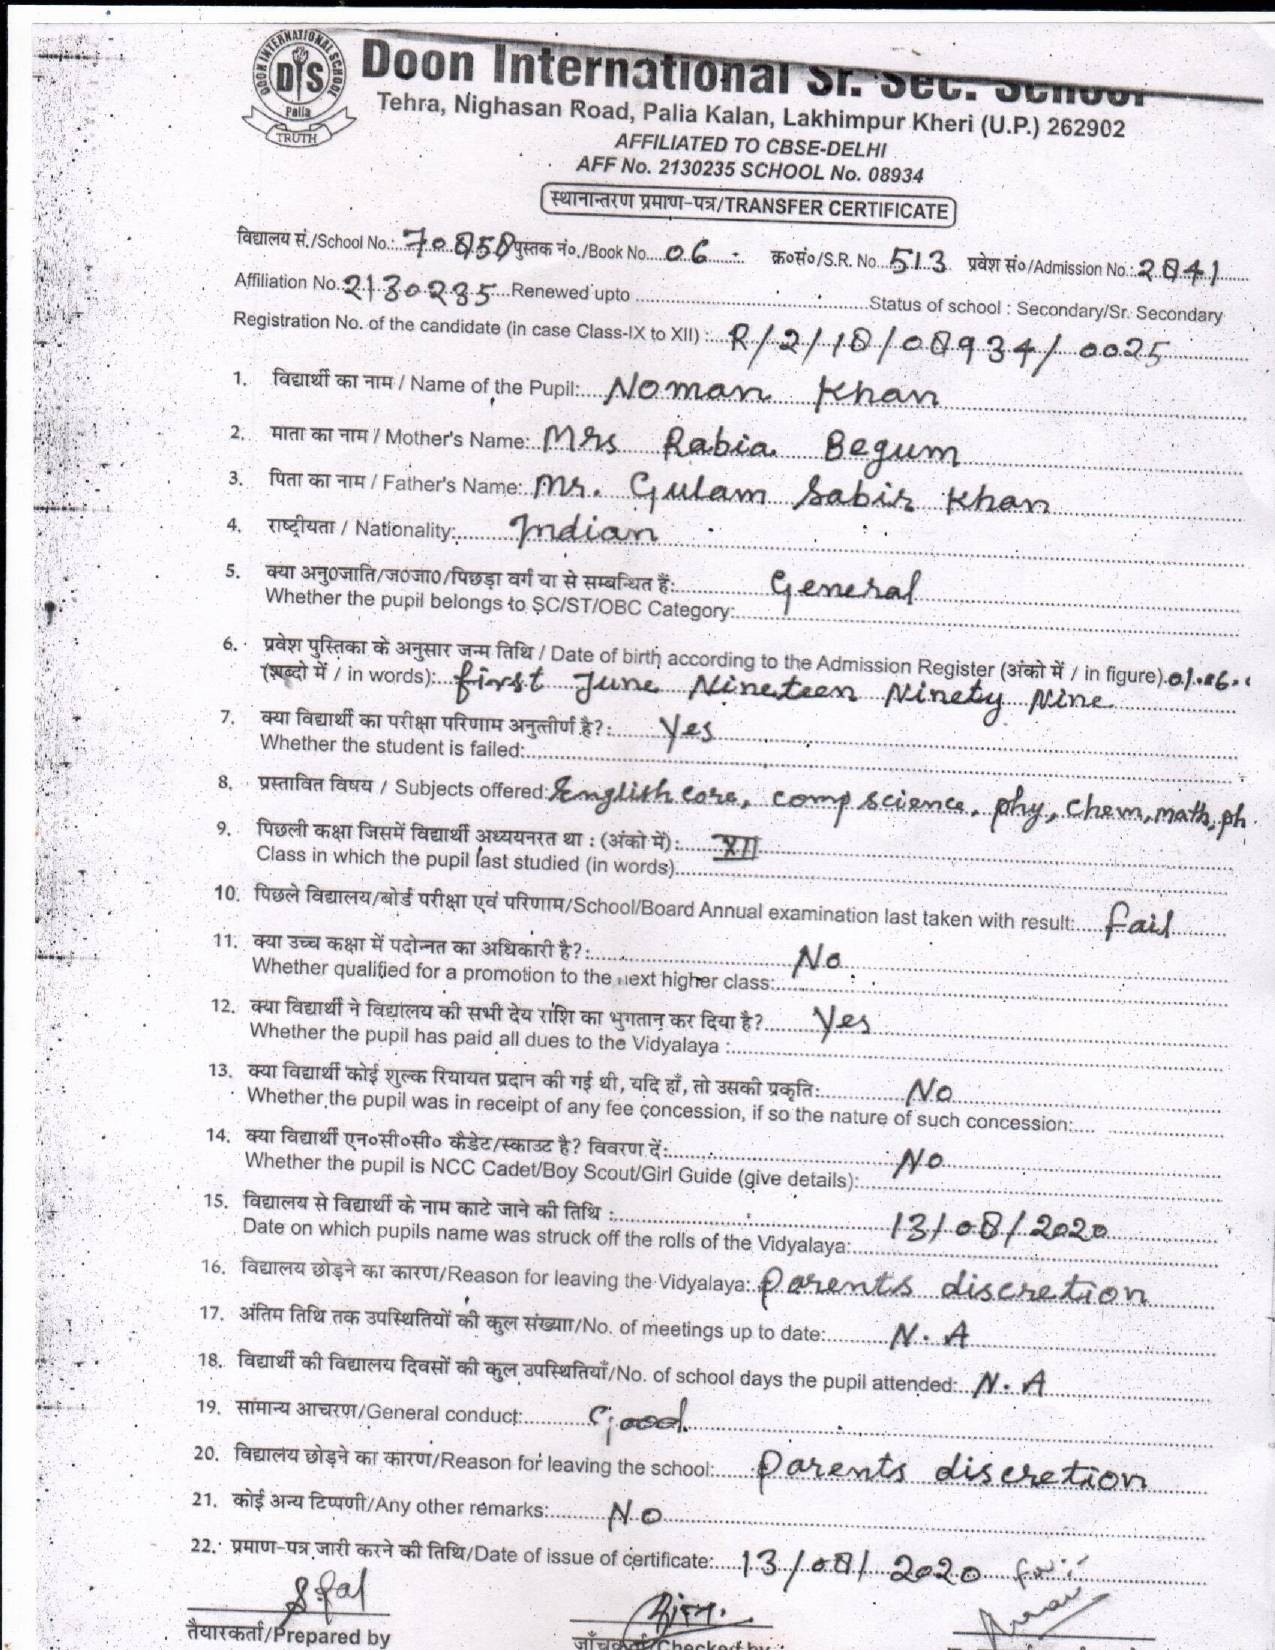 DOON INTERNATIONAL SCHOOL
DIS
Palia
TRUTH
Doon International Sr. Sec. School
Tehra, Nighasan Road, Palia Kalan, Lakhimpur Kheri (U.P.) 262902
AFFILIATED TO CBSE-DELHI
AFF No. 2130235 SCHOOL No. 08934
स्थानान्तरण प्रमाण-पत्र/TRANSFER CERTIFICATE
विद्यालय सं./School No.: 70858 पुस्तक नं०./Book No. 06 क्र०सं०/S.R. No. 513 प्रवेश सं०/Admission No.: 2841
Affiliation No. 2130235 Renewed upto Status of school : Secondary/Sr. Secondary
Registration No. of the candidate (in case Class-IX to XII) : R/2/18/08934/0025
1. विद्यार्थी का नाम / Name of the Pupil: Noman Khan
2. माता का नाम / Mother's Name: Mrs Rabia Begum
3. पिता का नाम / Father's Name: Mr. Gulam Sabir Khan
4. राष्ट्रीयता / Nationality: Indian
5. क्या अनु०जाति/ज०जा०/पिछड़ा वर्ग या से सम्बन्धित हैं: General
Whether the pupil belongs to SC/ST/OBC Category:
6. प्रवेश पुस्तिका के अनुसार जन्म तिथि / Date of birth according to the Admission Register (अंको में / in figure) 01.06.
(शब्दो में / in words): first June Nineteen Ninety Nine
7. क्या विद्यार्थी का परीक्षा परिणाम अनुत्तीर्ण है?: Yes
Whether the student is failed:
8. प्रस्तावित विषय / Subjects offered: English core, comp science, phy, chem, math, ph
9. पिछली कक्षा जिसमें विद्यार्थी अध्ययनरत था : (अंको में) : XII
Class in which the pupil last studied (in words)
10. पिछले विद्यालय/बोर्ड परीक्षा एवं परिणाम/School/Board Annual examination last taken with result: fail
11. क्या उच्च कक्षा में पदोन्नत का अधिकारी है?: No
Whether qualified for a promotion to the next higher class:
12. क्या विद्यार्थी ने विद्यालय की सभी देय राशि का भुगतान कर दिया है? Yes
Whether the pupil has paid all dues to the Vidyalaya :
13. क्या विद्यार्थी कोई शुल्क रियायत प्रदान की गई थी, यदि हाँ, तो उसकी प्रकृति: No
Whether the pupil was in receipt of any fee concession, if so the nature of such concession:
14. क्या विद्यार्थी एन०सी०सी० कैडेट/स्काउट है? विवरण दें: No
Whether the pupil is NCC Cadet/Boy Scout/Girl Guide (give details):
15. विद्यालय से विद्यार्थी के नाम काटे जाने की तिथि : 13/08/2020
Date on which pupils name was struck off the rolls of the Vidyalaya:
16. विद्यालय छोड़ने का कारण/Reason for leaving the Vidyalaya: Parents discretion
17. अंतिम तिथि तक उपस्थितियों की कुल संख्या/No. of meetings up to date: N.A
18. विद्यार्थी की विद्यालय दिवसों की कुल उपस्थितियाँ/No. of school days the pupil attended: N.A
19. सामान्य आचरण/General conduct: Good
20. विद्यालय छोड़ने का कारण/Reason for leaving the school: Parents discretion
21. कोई अन्य टिप्पणी/Any other remarks: No
22. प्रमाण-पत्र जारी करने की तिथि/Date of issue of certificate: 13/08/2020 for
तैयारकर्ता/Prepared by जाँचकर्ता/Checked by